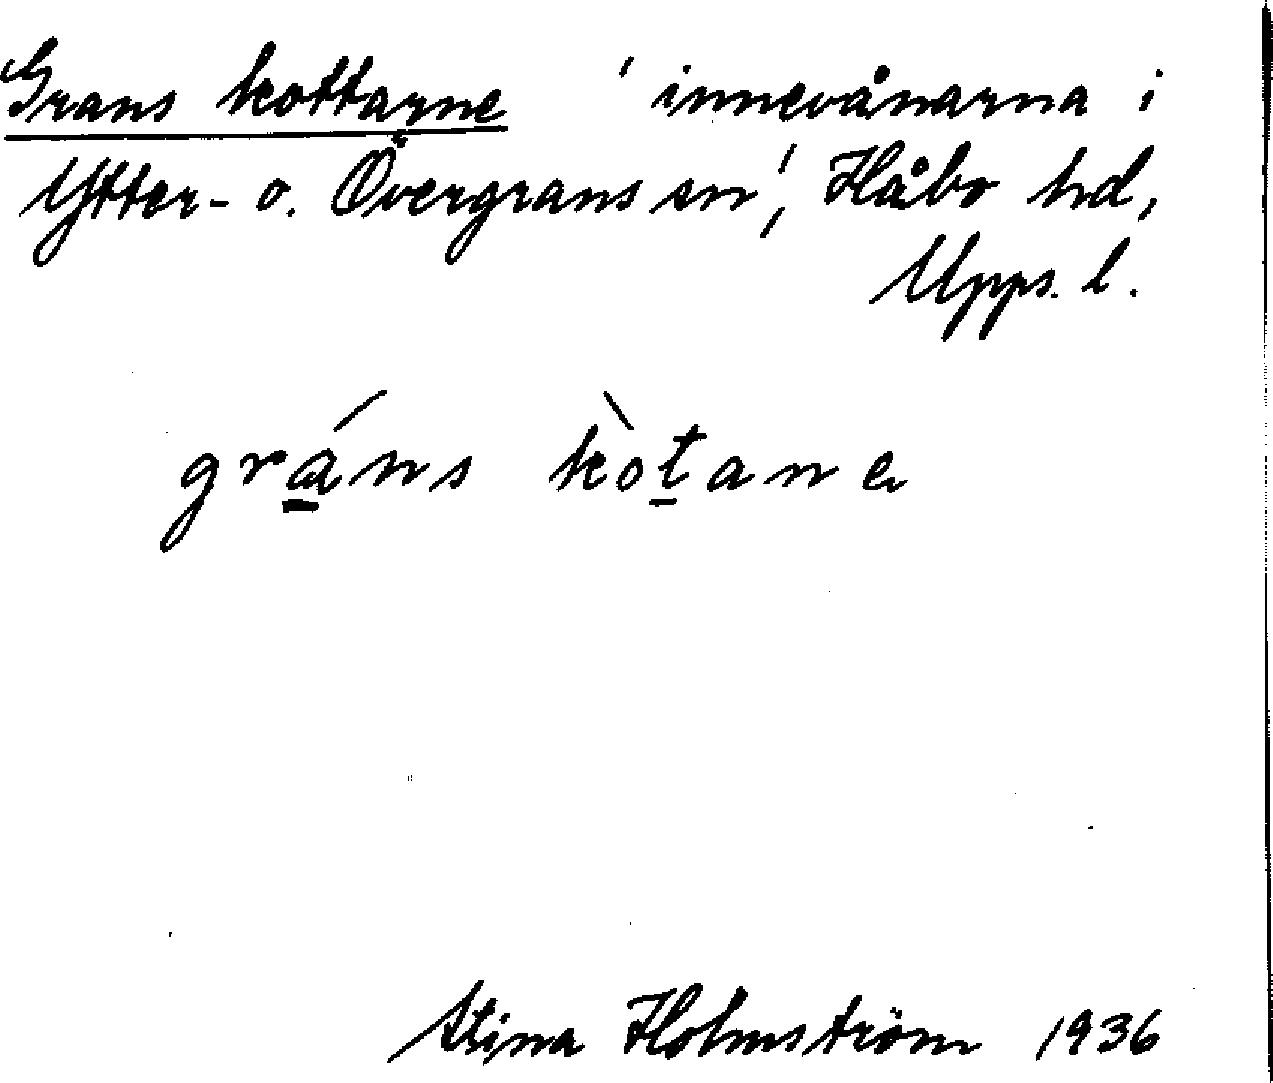 Grans kottarne 'innevånarna i
Ytter- o. Övergrans sn', Håbo hd,
Upps. l.
grá̲ns kòt̲ane
Stina Holmström 1936